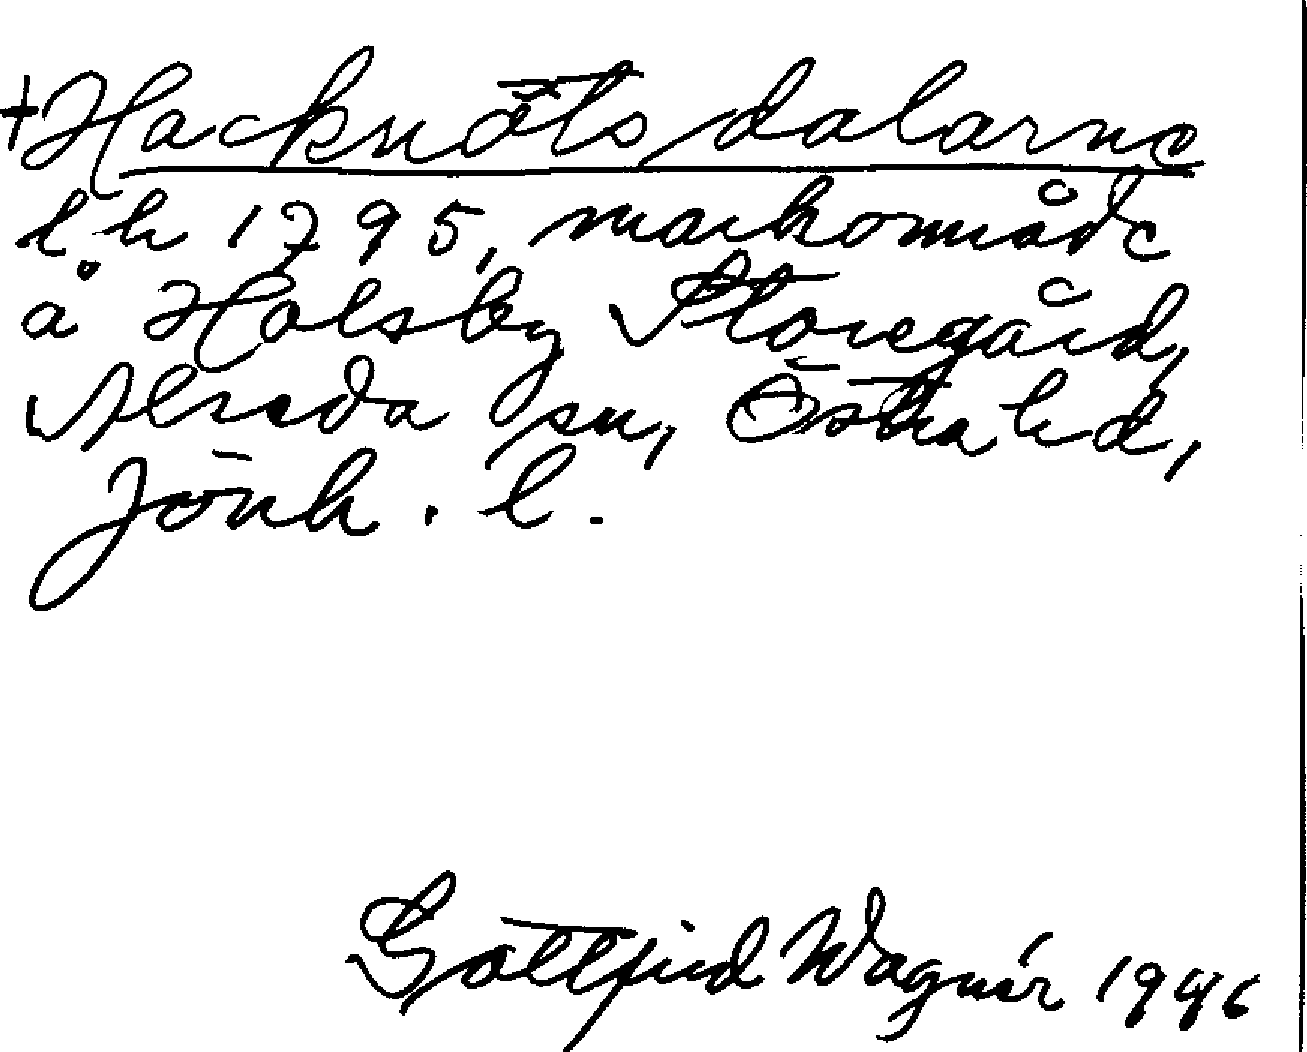 +Hacknötsdalarne
lh 1795, markområde
å Holsby Storegård,
Alseda sn, Östra hd,
Jönk. l.
Gottfrid Wagnér 1946